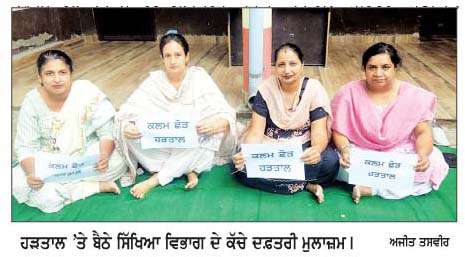 ਕਲਮ ਛੋੜ
ਹੜਤਾਲ
ਕਲਮ ਛੋੜ
ਹੜਤਾਲ
ਕਲਮ ਛੋੜ
ਹੜਤਾਲ
ਕਲਮ ਛੋੜ
ਹੜਤਾਲ
ਹੜਤਾਲ 'ਤੇ ਬੈਠੇ ਸਿੱਖਿਆ ਵਿਭਾਗ ਦੇ ਕੱਚੇ ਦਫ਼ਤਰੀ ਮੁਲਾਜ਼ਮ।
ਅਜੀਤ ਤਸਵੀਰ